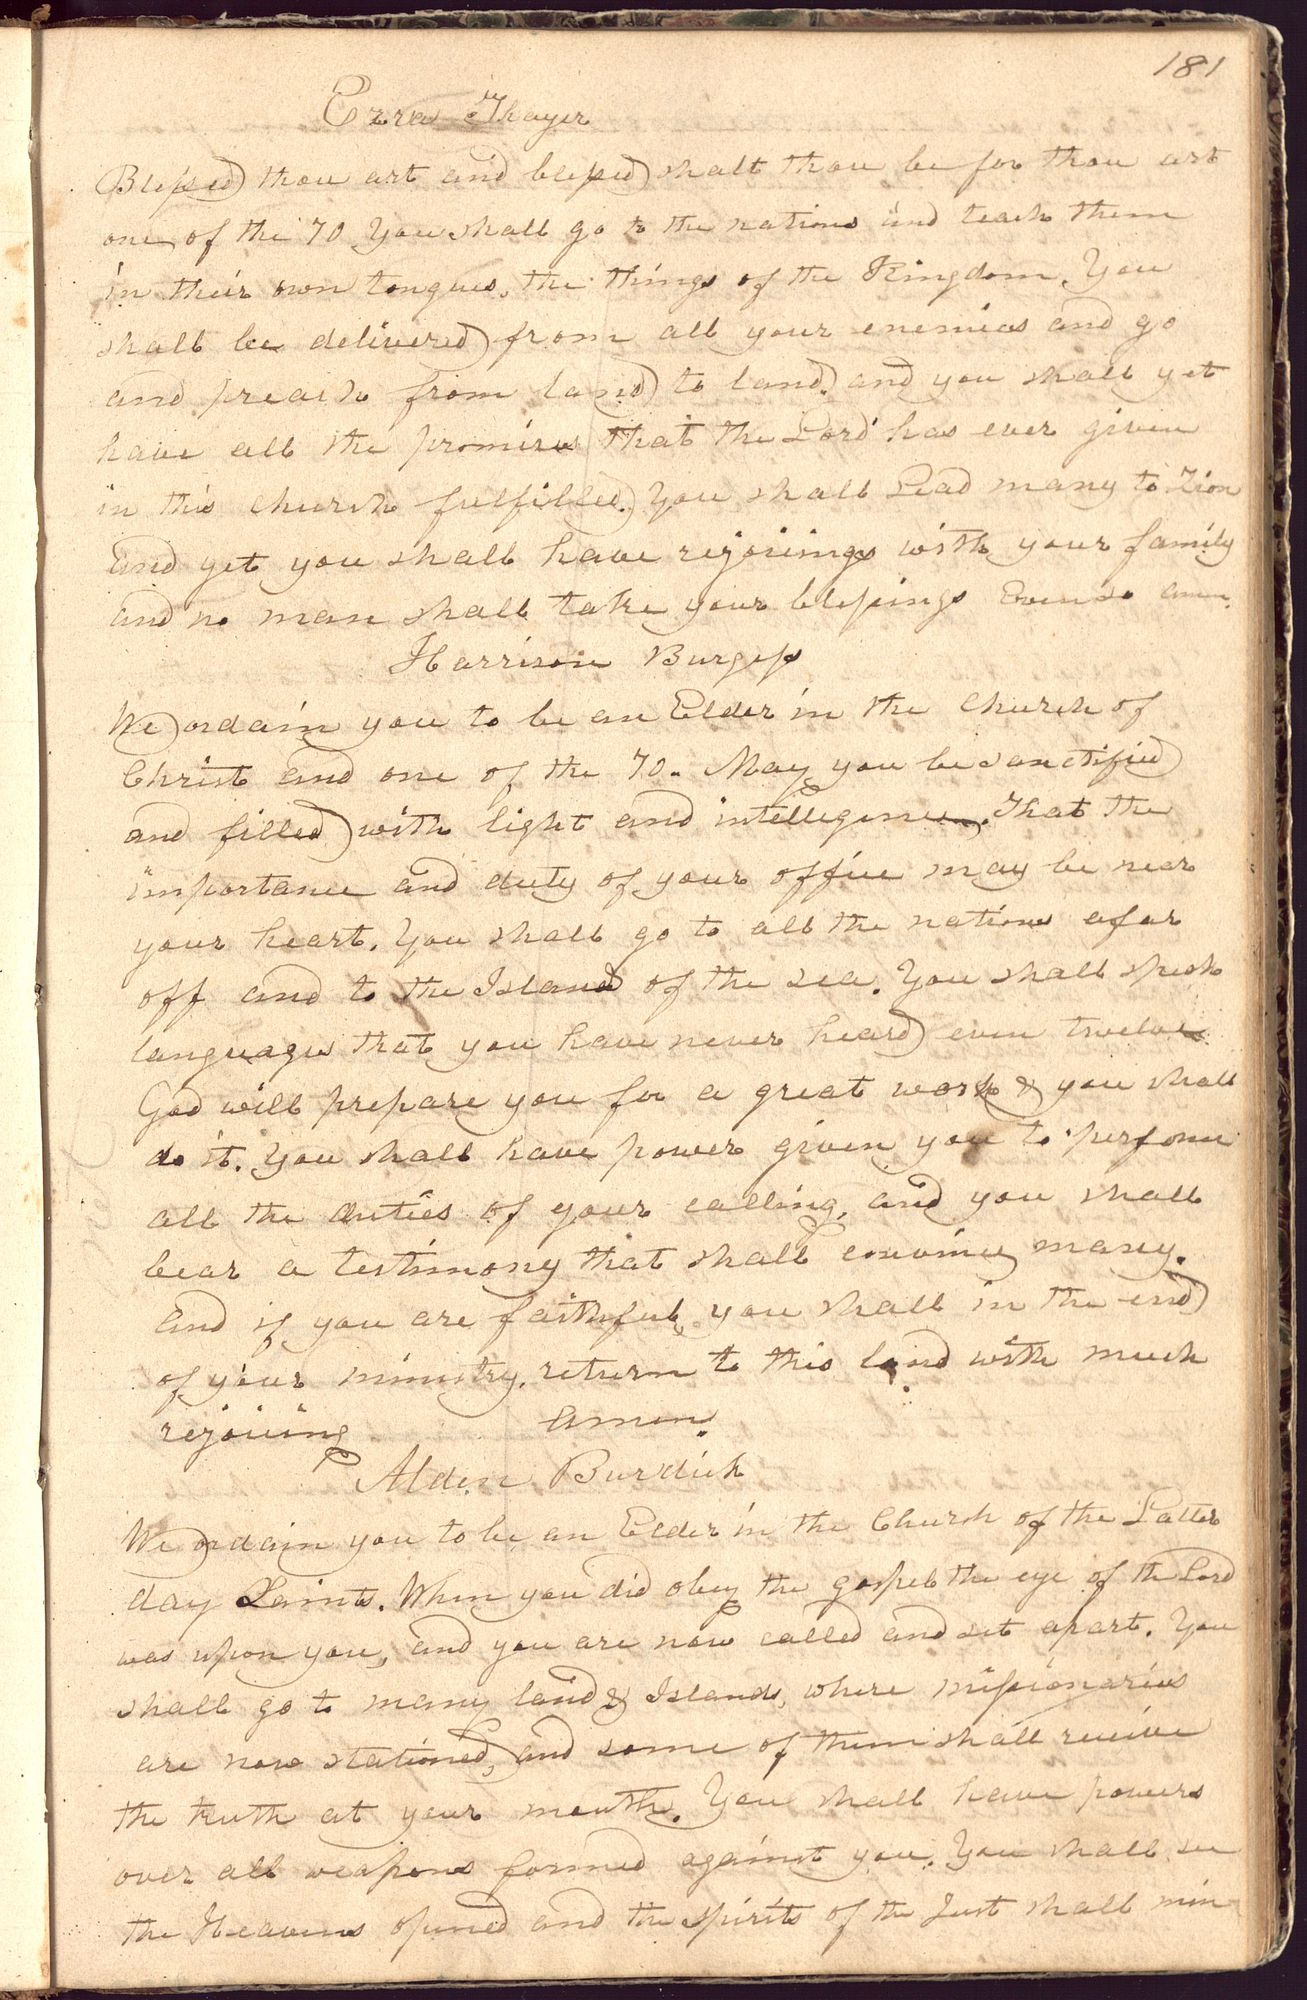 181
Ezra Thayer
Blessed thou art and blessed shalt thou be for thou art
one of the 70 You shall go to the nations and teach them
in their own tongues, the things of the Kingdom. You
shall be delivered from all your enemies and go
and preach from land to land. and you shall yet
have all the promises that the Lord has ever given
in this Church fulfilled. You shall Lead many to Zion
And yet you shall have rejoicings with your family
and no man shall take your blessings Even so amen.
Harrison Burgess
We ordain you to be an Elder in the Church of
Christ and one of the 70. May you be sanctified
and filled with light and intelligence. That the
importance and duty of your office may be near
your heart. You shall go to all the nations afar
off and to the Island of the sea. You shall speak
languages that you have never heard even twelve
God will prepare you for a great work & you shall
do it. You shall have power given you to perform
all the duties of your calling, and you shall
bear a testimony that shall convince many.
And if you are faithful, you shall in the end
of your ministry, return to this land with much
rejoicing Amen.
Alden Burdick
We ordain you to be an Elder in the Church of the Latter
day Saints. When you did obey the gospel the eye of the Lord
was upon you, and you are now called and set apart. You
shall go to many land & Islands, where missionaries
are now stationed, and some of them shall receive
the truth at your mouth. You shall have powers
over all weapons formed against you. You shall see
the Heavens opened and the spirits of the Just shall min